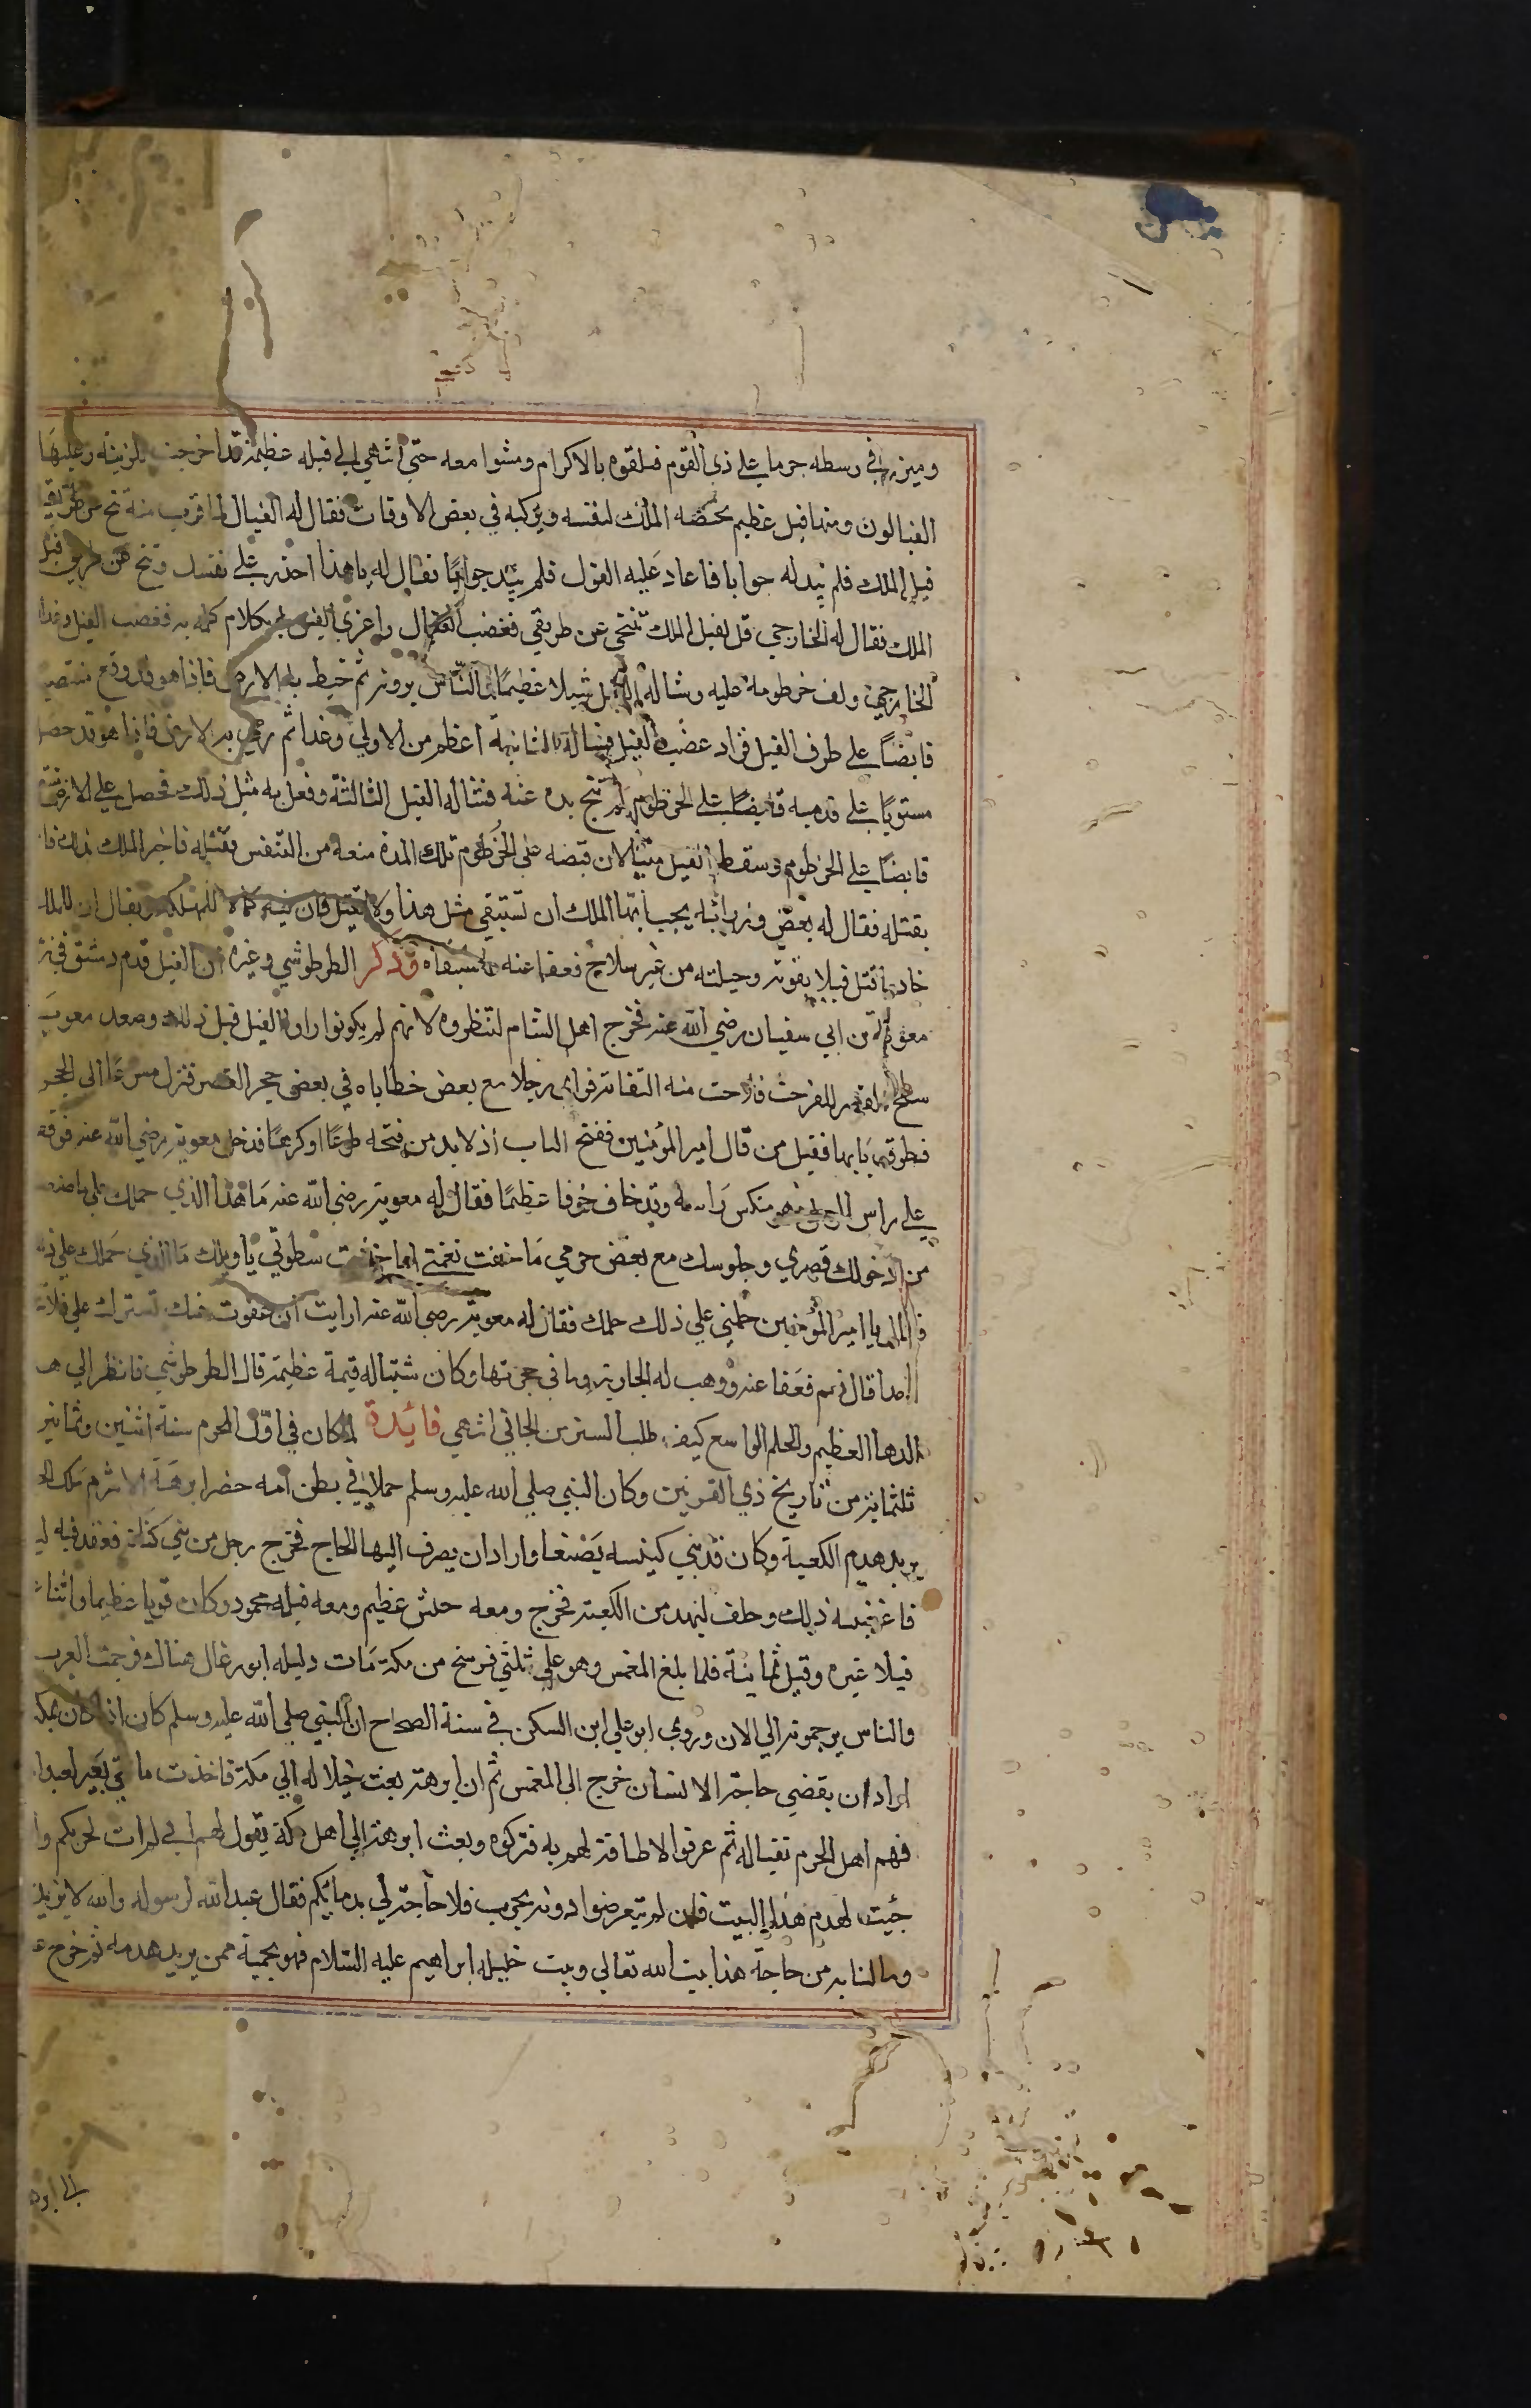 ومئزر في وسطه جريا على ذي القوم فلقوه بالاكرام ومشوا معه حتي انتهي الي فيله عظيمة قد اخرجت للزينة وعليها
الفيالون ومنها فيل عظيم يختصه الملك لنفسه ويركبه في بعض الاوقات فقال له الفيال لما قرب منه تنح عن طريق
فيل الملك فلم يبد له جوابا فاعاد عليه القول فلم يبد جوابا فقال له ياهذا احذر على نفسك وتنح عن طريق فيل
الملك فقال له الخارجي قل لفيل الملك تنحي عن طريقي فغضب الفيال واغري الفيل به بكلام كلمه به فغضب الفيل وغدا
الخارجي ولف خرطومه عليه وشاله الفيل شيلا عظيما والناس يرونه ثم خبط به الارض فاذا هو قد وقع منتصبا
قابضا على طرف الفيل فزاد غضب الفيل فشاله الثانية اعظم من الاولي وغدا ثم رمي به الارض فاذا هو قد حصل
مستويا على قدميه قابضا على الخرطوم لم تنح يده عنه فشاله الفيل الثالثة وفعل به مثل ذلك فحصل على الارض
قابضا على الخرطوم وسقط الفيل ميتا لان قبضه على الخرطوم تلك المدة منعه من التنفس فقتله فاخبر الملك بذلك فا
بقتله فقال له بعض وزرائه يجب ايها الملك ان تستبقي مثل هذا ولا يقتل فان فيه جمالا للمملكة ويقال ان للملك
خادما قتل فيلا بقوته وحيلته من غير سلاح فعفا عنه واستبقاه وذكر الطرطوشي وغيره ان الفيل قدم دمشق في زمن
معوية بن ابي سفيان رضي الله عنه فخرج اهل الشام لتنظروه لانهم لم يكونوا راوا الفيل قبل ذلك وصعد معوية
سطح القصر للفرجت فلاحت منه التفاتة فراى رجلا مع بعض حظاياه في بعض حجر القصر فنزل مسرعا الى الحجر
فطرق بابها فقيل من قال امير المؤمنين ففتح الباب اذ لابد من فتحه طوعا او كرها فدخل معوية رضي الله عنه فوقف
على راس الرجل وهو منكس راسه وقد خاف خوفا عظيما فقال له معوية رضي الله عنه ما هذا الذي حملك على ما صنعت
من دخولك قصري وجلوسك مع بعض حرمي ما خفت نقمتي اما خفت سطوتي يا ويلك ما الذي حملك على ذلك
فقال يا امير المؤمنين حملني علي ذلك حلمك فقال له معوية رضي الله عنه ارايت ان عفوت عنك تستره علي فلا
احدا قال نعم فعفا عنه ووهب له الجارية وما في حجرتها وكان شيئا له قيمة عظيمة قال الطرطوشي فانظر الي هذا
الدها العظيم والحلم الواسع كيف طلب الستر من الجاني انتهي فائدة لما كان في اول المحرم سنة اثنين وثمانين
ثلثماية من تاريخ ذي القرنين وكان النبي صلي الله عليه وسلم حملا في بطن امه حضر ابرهة الاشرم ملك الحـ
يريد هدم الكعبة وكان قد بني كنيسه بصنعا واراد ان يصرف اليها الحاج فخرج رجل من بني كنانة فقعد فيه ليـ
فاغضبه ذلك وحلف ليهدمن الكعبة فخرج ومعه حبش عظيم ومعه فيله محمود وكان قويا عظيما واثنا
فيلا غيره وقيل ثمانية فلما بلغ المغمس وهو علي ثلثي فرسخ من مكة مات دليله ابو رغال هناك فرجمت العرب
والناس يرجمونه الي الان وروى ابو علي ابن السكن في سنة الصحاح ان النبي صلي الله عليه وسلم كان اذا كان بمكة
اراد ان يقضي حاجة الانسان خرج الى المغمس ثم ان ابرهة بعث خيلا له الي مكة فاخذت مايتي بعير لعبد ا
فهم اهل الحرم بقتاله ثم عرفوا لا طاقة لهم به فتركوه وبعث ابرهة الي اهل مكة يقول لهم اني لم ات لحربكم وا
جئت لهدم هذا البيت فان لم تتعرضوا دونه بحرب فلا حاجة لي بدمايكم فقال عبد الله لرسوله والله لا نريد
وما لنا به من حاجة هذا بيت الله تعالي وبيت خليله ابراهيم عليه السلام فهو يحميه ممن يريد هدمه ثم خرج عـ